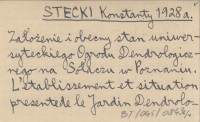 STECKI Konstanty 1928 a.
Założenie i obecny stan uniwer-
syteckiego Ogrodu Dendrologicz-
nego na Sołaczu w Poznaniu.
L'établissement et situation
presentede le Jardin Dendrolo-